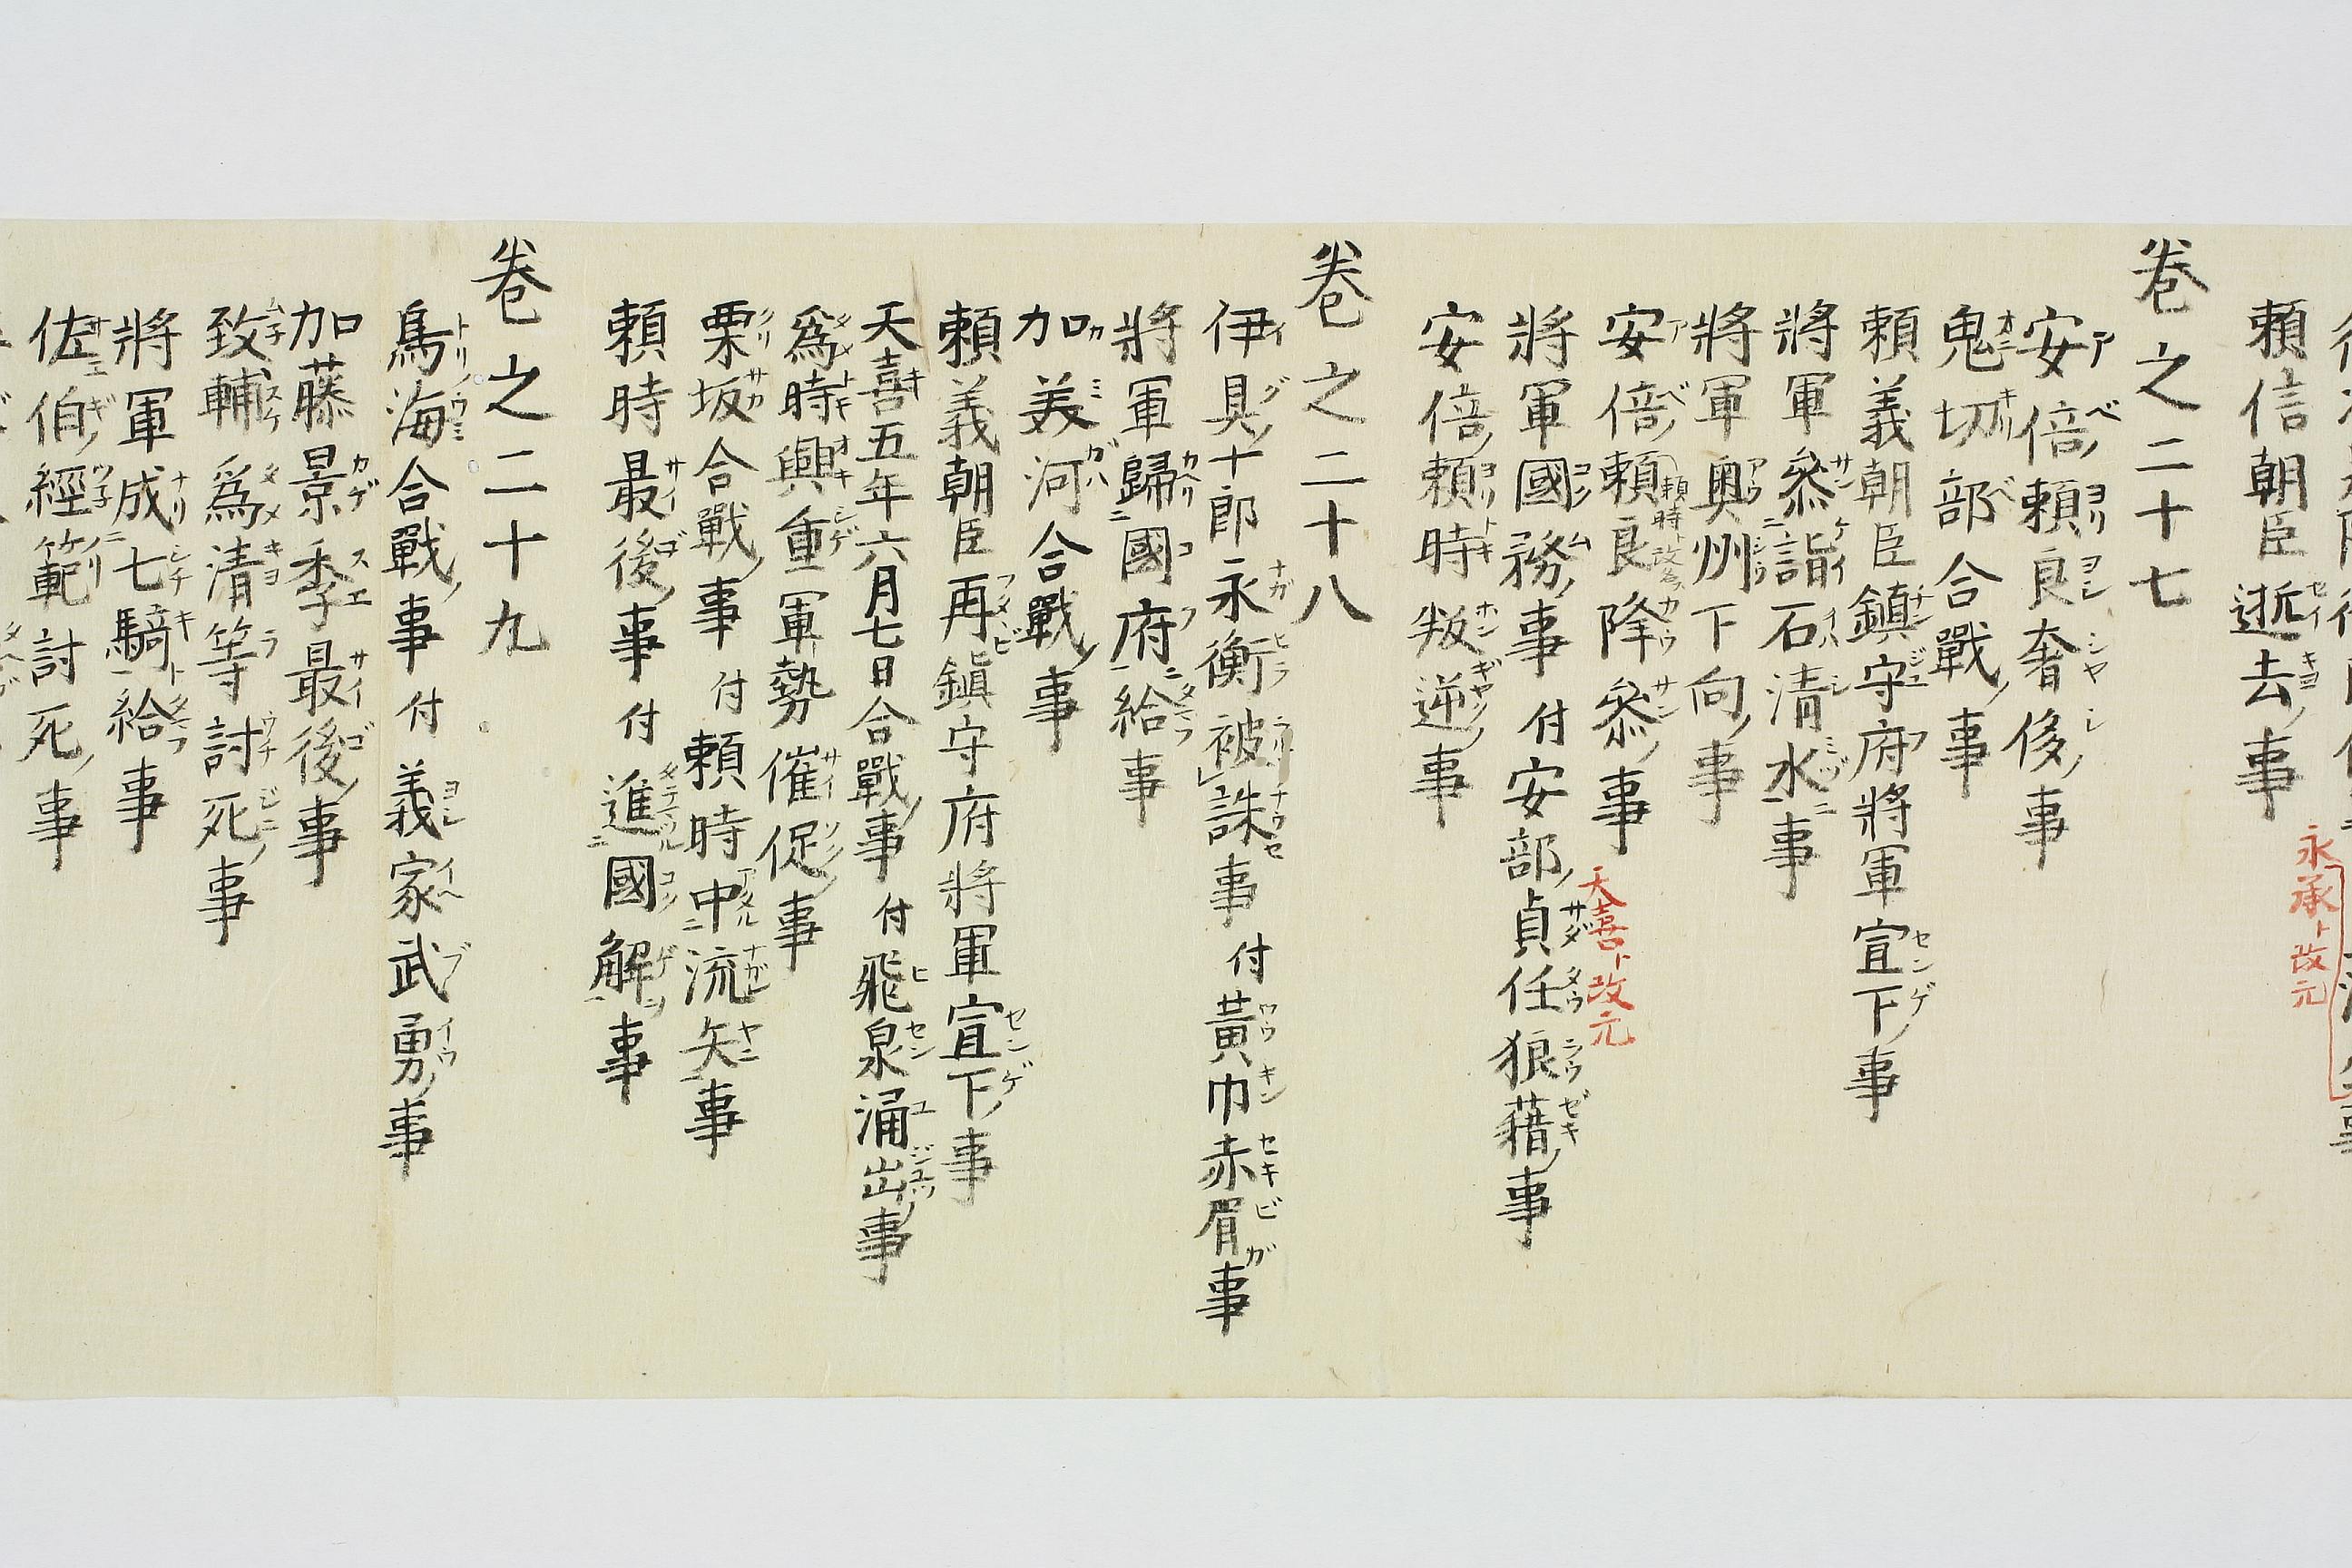 頼信朝臣逝去事 永承ト改元
卷之二十七
安倍頼良奢侈事
鬼切部合戰事
頼義朝臣鎮守府將軍宣下事
將軍參詣石清水事
將軍奥州下向事
安倍頼良降參事 天喜ト改元
將軍國務事 付安部貞任狼藉事
安倍頼時叛逆事
卷之二十八
伊具十郎永衡被誅事 付黃巾赤眉事
將軍歸國府給事
加美河合戰事
頼義朝臣再鎮守府將軍宣下事
天喜五年六月七日合戰事 付飛泉涌出事
爲時興重軍勢催促事
栗坂合戰事 付頼時中流矢事
頼時最後事 付進國解事
卷之二十九
鳥海合戰事 付義家武勇事
加藤景季最後事
致輔爲清等討死事
將軍成七騎給事
佐伯經範討死事